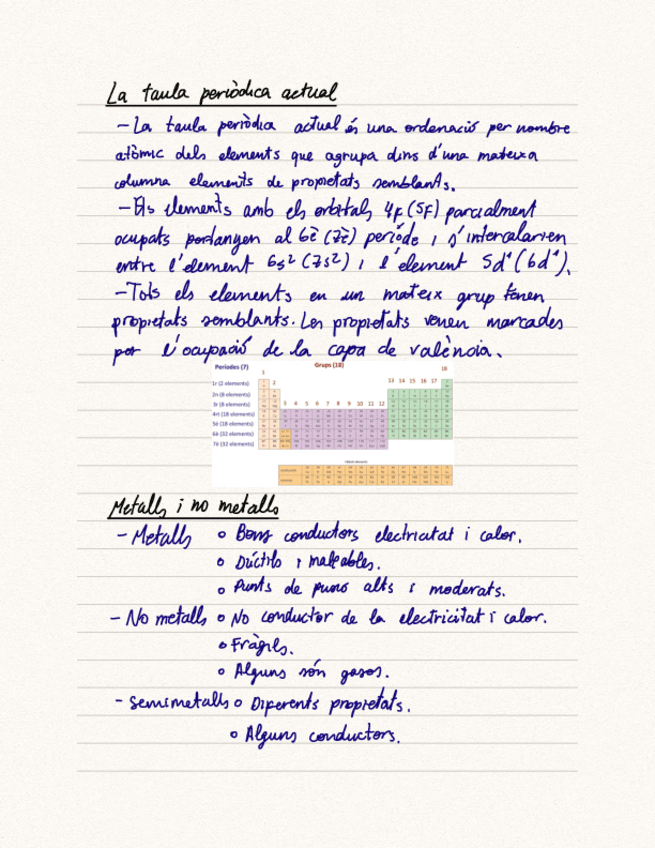 La taula periòdica actual
- La taula periòdica actual és una ordenació per nombre
atòmic dels elements que agrupa dins d'una mateixa
columna elements de propietats semblants.
- Els elements amb els orbitals 4f (5f) parcialment
ocupats pertanyen al 6è (7è) període i s'intercalarien
entre l'element 6s² (7s²) i l'element 5d¹ (6d¹).
- Tots els elements en un mateix grup tenen
propietats semblants. Les propietats venen marcades
per l'ocupació de la capa de valència.
Períodes (7) Grups (18)
1 18
1r (2 elements) 2 13 14 15 16 17
2n (8 elements)
3r (8 elements) 3 4 5 6 7 8 9 10 11 12
4rt (18 elements)
5è (18 elements)
6è (32 elements)
7è (32 elements)
Metalls i no metalls
- Metalls o Bons conductors electricitat i calor.
o Dúctils i maleables.
o Punts de fusió alts i moderats.
- No metalls o No conductor de la electricitat i calor.
o Fràgils.
o Alguns són gasos.
- Semimetalls o Diferents propietats.
o Alguns conductors.